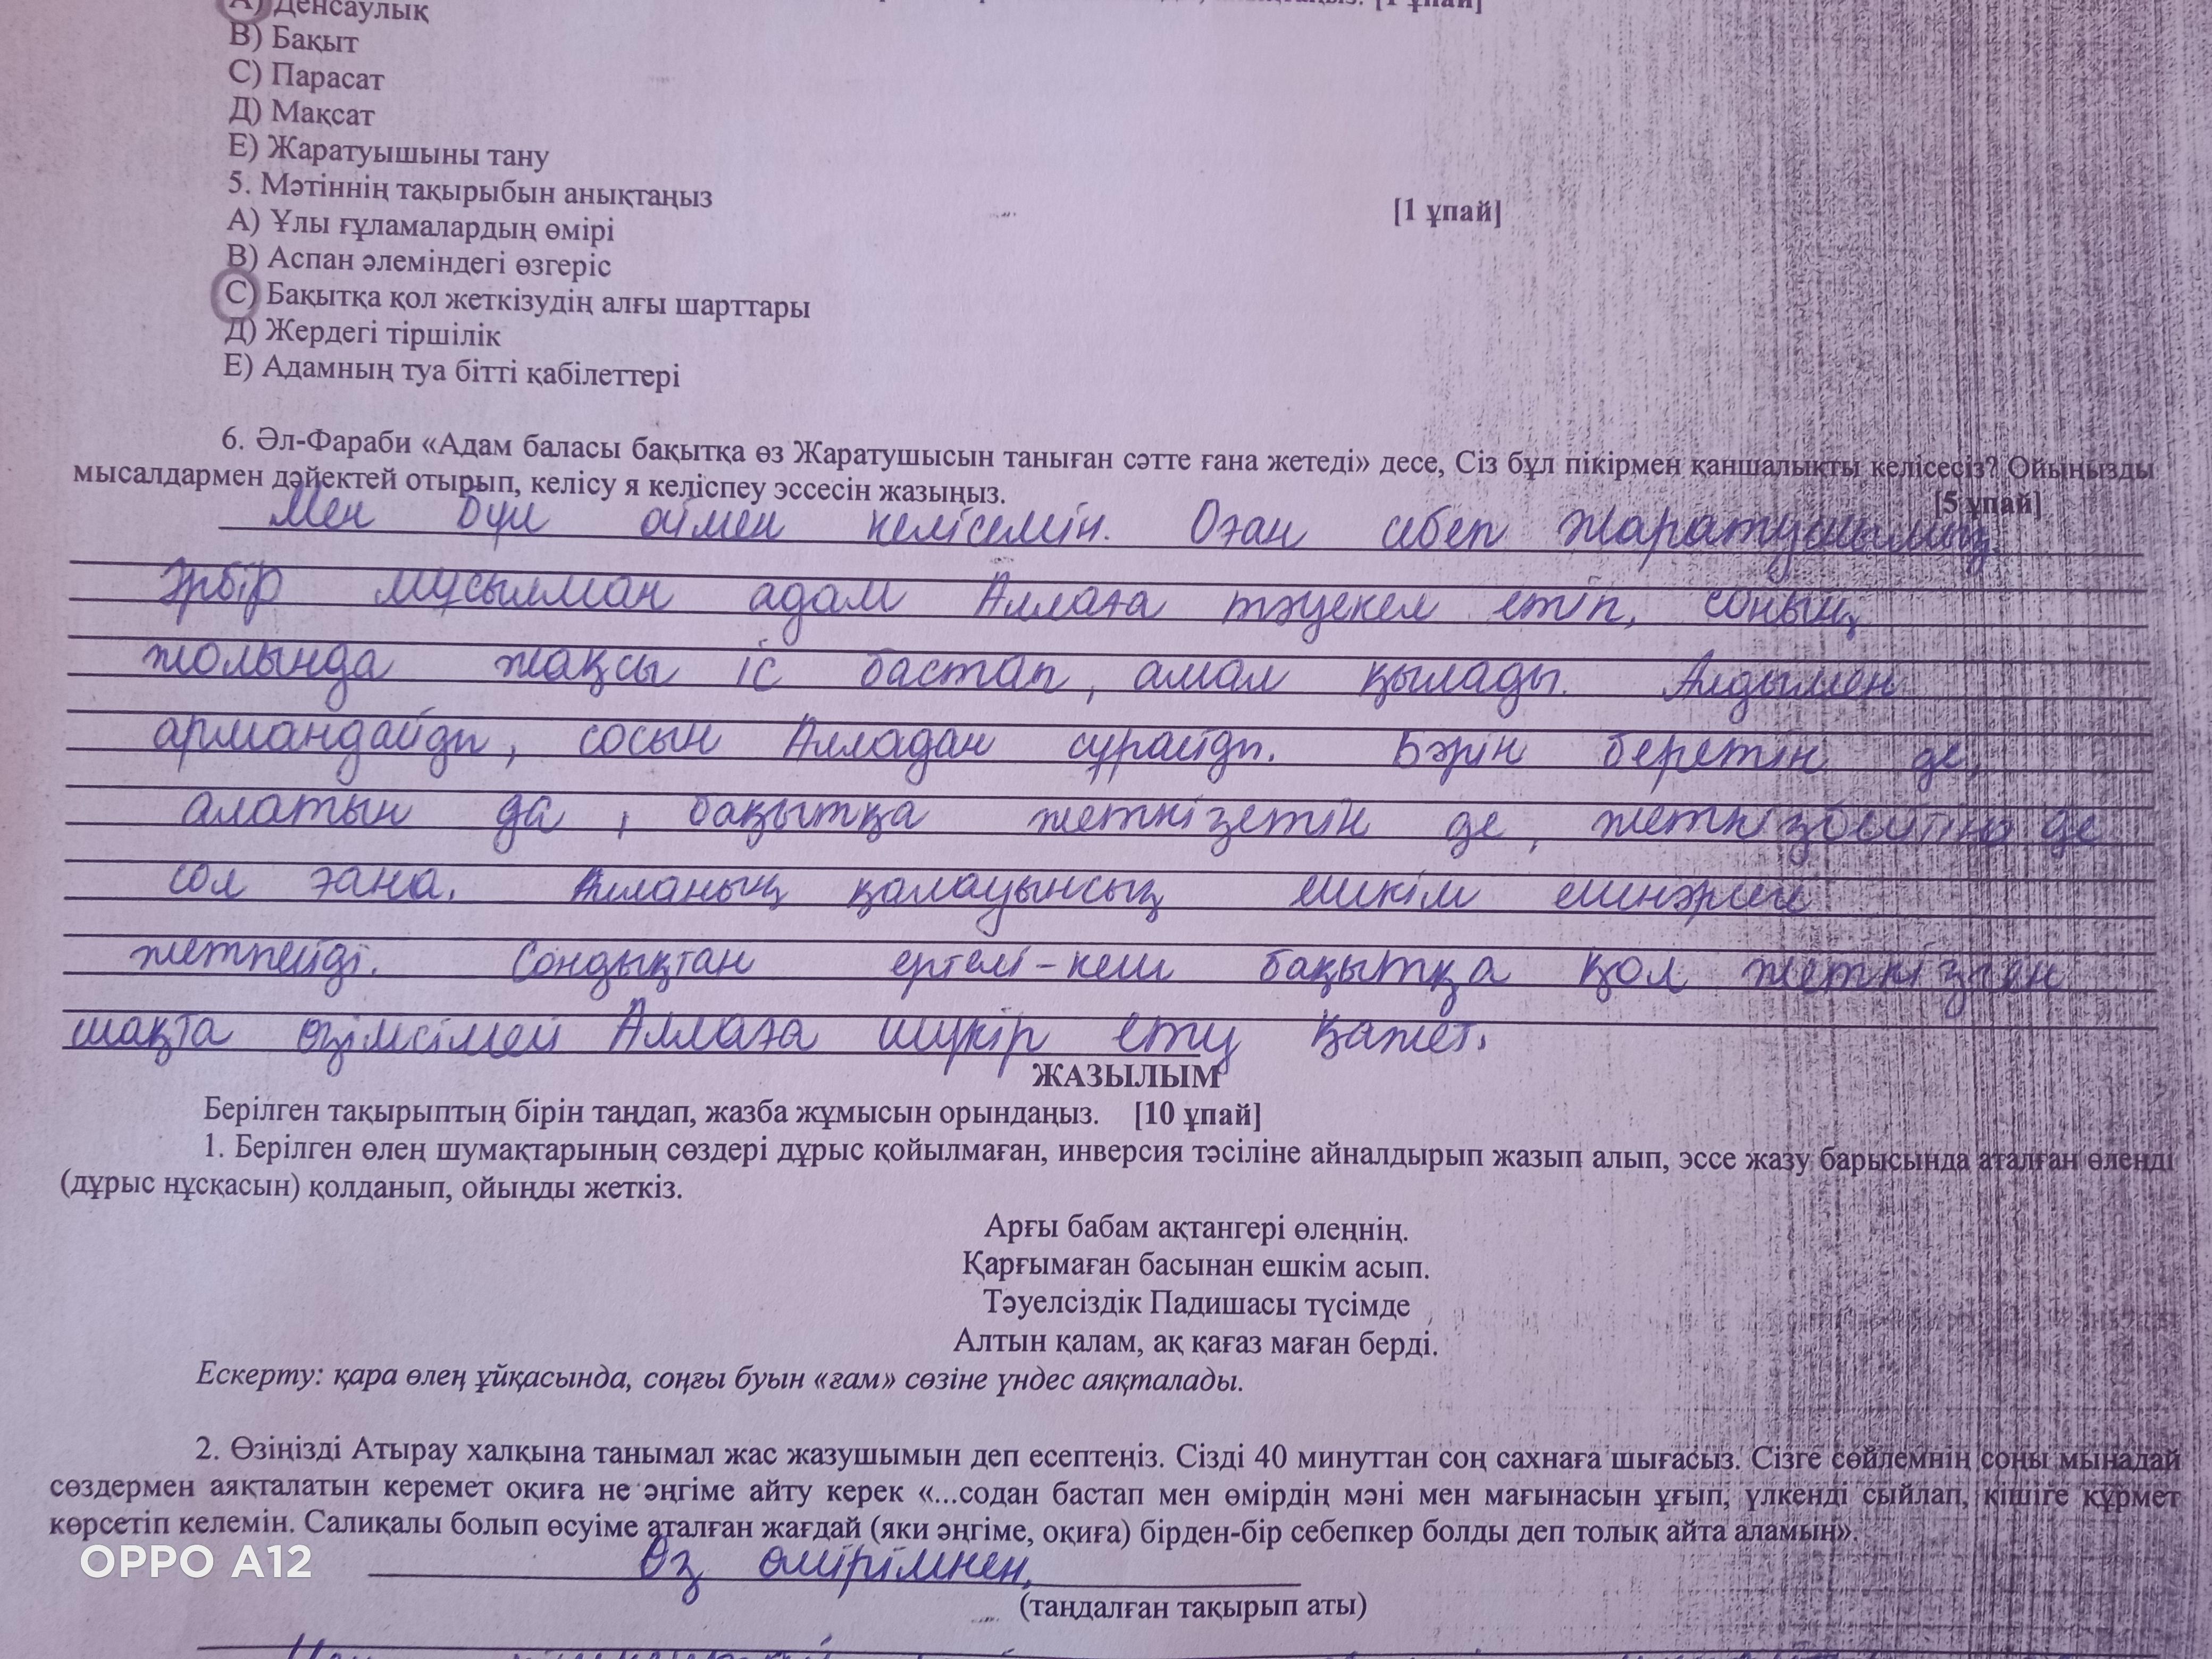 А) Денсаулық
В) Бақыт
С) Парасат
Д) Мақсат
Е) Жаратуышыны тану
5. Мәтіннің тақырыбын анықтаңыз [1 ұпай]
А) Ұлы ғұламалардың өмірі
В) Аспан әлеміндегі өзгеріс
С) Бақытқа қол жеткізудің алғы шарттары
Д) Жердегі тіршілік
Е) Адамның туа бітті қабілеттері
6. Әл-Фараби «Адам баласы бақытқа өз Жаратушысын таныған сәтте ғана жетеді» десе, Сіз бұл пікірмен қаншалықты келісесіз? Ойыңызды
мысалдармен дәйектей отырып, келісу я келіспеу эссесін жазыңыз. [5 ұпай]
Мен бұл оймен келісемін. Оған себеп Жаратушымыз.
Әрбір мұсылман адам Аллаға тәуекел етіп, соның
жолында жақсы іс бастап, амал қылады. Алдымен
армандайды, сосын Алладан сұрайды. Бәрін беретін де,
алатын да, бақытқа жеткізетін де, жеткізбейтін де
сол ғана. Алланың қалауынсың ешкім ешнәрсеге
жетпейді. Сондықтан ертелі-кеш бақытқа қол жеткізген
шақта өзімсімей Аллаға шүкір ету қажет.
ЖАЗЫЛЫМ
Берілген тақырыптың бірін таңдап, жазба жұмысын орындаңыз. [10 ұпай]
1. Берілген өлең шумақтарының сөздері дұрыс қойылмаған, инверсия тәсіліне айналдырып жазып алып, эссе жазу барысында аталған өленді
(дұрыс нұсқасын) қолданып, ойыңды жеткіз.
Арғы бабам ақтангері өлеңнің.
Қарғымаған басынан ешкім асып.
Тәуелсіздік Падишасы түсімде
Алтын қалам, ақ қағаз маған берді.
Ескерту: қара өлең ұйқасында, соңғы буын «ғам» сөзіне үндес аяқталады.
2. Өзіңізді Атырау халқына танымал жас жазушымын деп есептеңіз. Сізді 40 минуттан соң сахнаға шығасыз. Сізге сөйлемнің соңы мынадай
сөздермен аяқталатын керемет оқиға не әңгіме айту керек «...содан бастап мен өмірдің мәні мен мағынасын ұғып, үлкенді сыйлап, кішіге құрмет
көрсетіп келемін. Салиқалы болып өсуіме аталған жағдай (яки әңгіме, оқиға) бірден-бір себепкер болды деп толық айта аламын».
OPPO A12
Өз өмірімнен.
(таңдалған тақырып аты)